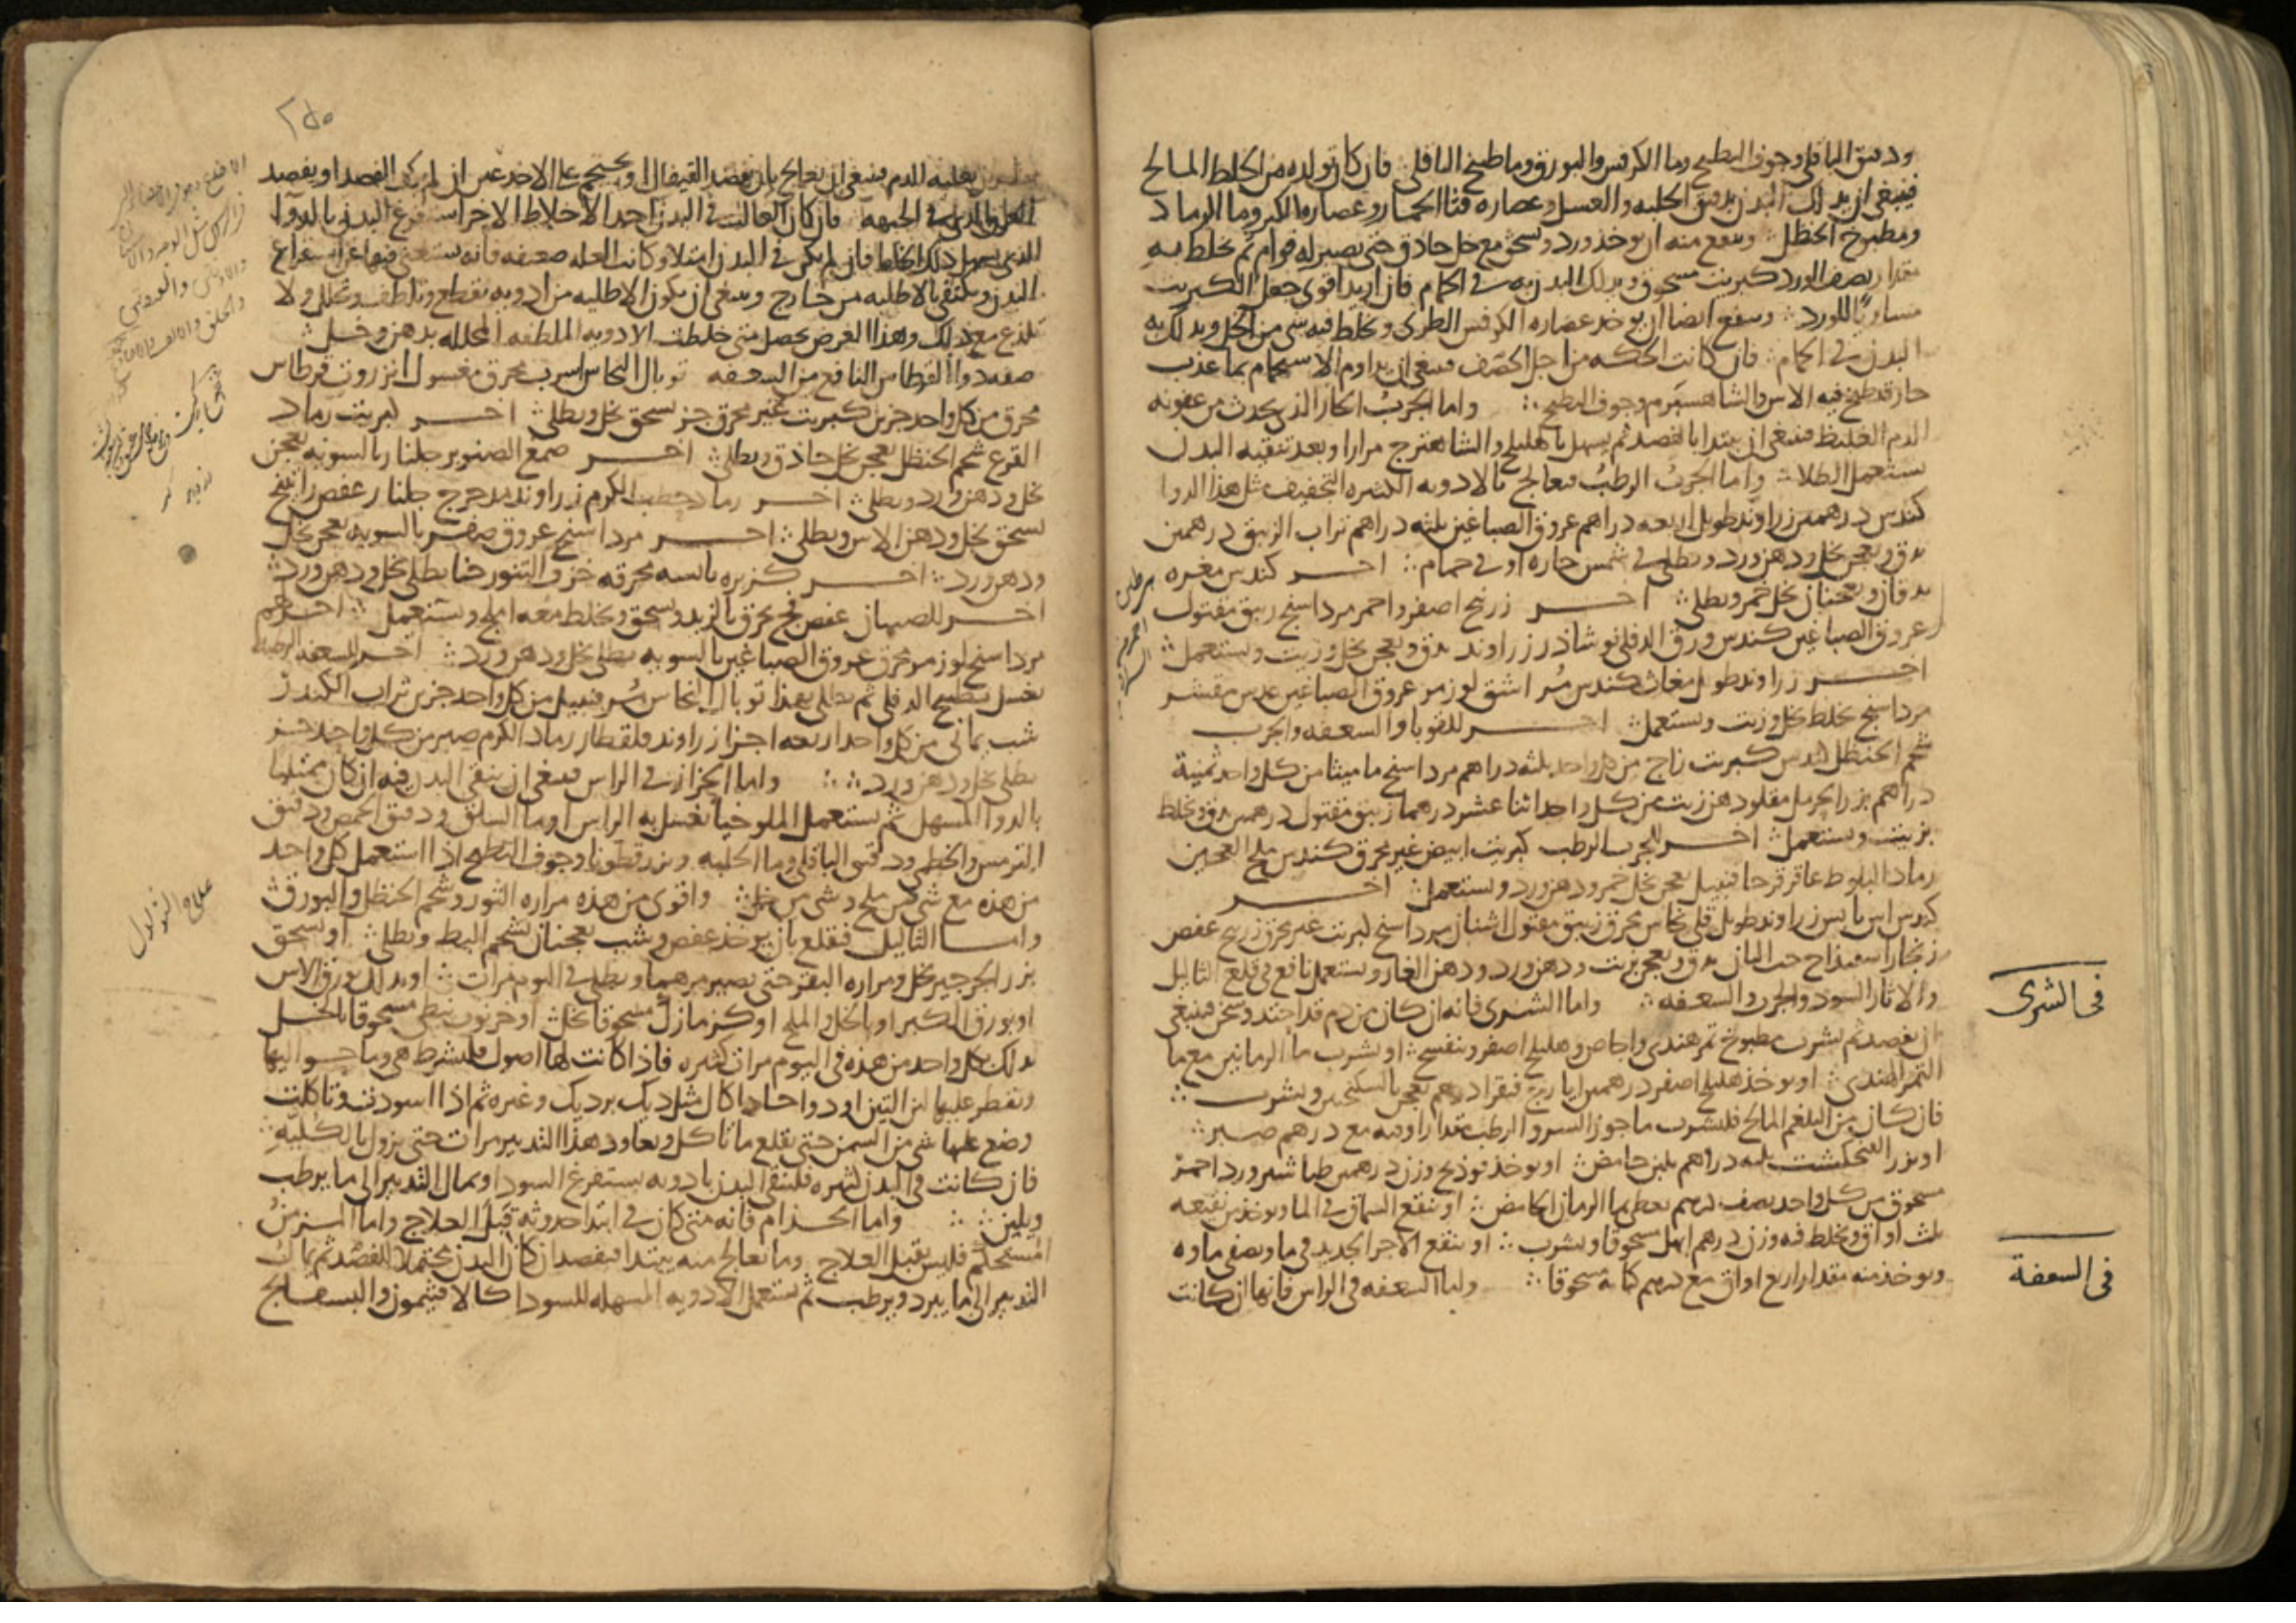 ودقيق الباقلي وجوف البطيخ وما الكرفس والبورق وما طبيخ الباقلي فان كان تولده من الخلط المالح
فينبغي ان يدلك البدن بدقيق الحلبه والعسل وعصاره قثا الحمار وعصاره الكبر وما الرماد
ومطبوخ الحنظل وينفع منه ان يوخذ ورد ويسحق مع خل حاذق حتى يصير له قوام ثم يخلط به
مقدار نصف الورد كبريت مسحوق ويدلك البدن به في الحمام فان اريد اقوى جعل الكبريت
مساويا للورد وينفع ايضا ان يوخذ عصاره الكرفس الطري ويخلط فيه شي من الخل ويدلك به
البدن في الحمام فان كانت الحكه من اجل الحصف فينبغي ان يداوم الاستحمام بما عذب
حار قد طبخ فيه الاس والشاهسبرم وجوف البطيخ واما الجرب الحار الذي يحدث من عفونه
الدم الغليظ فينبغي ان يبتدا بالفصد ثم يسهل بالهليلج والشاهترج مرارا وبعد تنقيه البدن
يستعمل الطلا واما الجرب الرطب فيعالج بالادويه الكثيره التجفيف مثل هذا الدوا
كندس درهمين زراوند طويل اربعه دراهم عروق الصباغين ثلثه دراهم تراب الزيبق درهمين
يدق ويعجن بخل ودهن ورد ويطلى في شمس حاره او في حمام اخر كندس مغره
يدقان ويعجنان بخل خمر ويطلى اخر زرنيخ اصفر واحمر مرداسنج زيبق مقتول
عروق الصباغين كندس ورق الدفلى نوشاذر زراوند يدق ويعجن بخل وزيت ويستعمل
اخر زراوند طويل مغاث كندس مر اشق لوز مر عروق الصباغين عدس مقشر
مرداسنج يخلط بخل وزيت ويستعمل اخر للقوبا والسعفه والجرب
شحم الحنظل كندس كبريت زاج من كل واحد ثلثه دراهم مرداسنج ماميثا من كل واحد ثمنية
دراهم بزر الحرمل مقلو دهن زيت من كل واحد اثنا عشر درهما زيبق مقتول درهمين يدق ويخلط
بزيت ويستعمل اخر للجرب الرطب كبريت ابيض غير محرق كندس ملح العجين
رماد البلوط عاقرقرحا قنبيل يعجن بخل خمر ودهن ورد ويستعمل اخر
كندس اس يابس زراوند طويل قلي نحاس محرق زيبق مقتول اشنان مرداسنج كبريت غير محرق زرنيخ عفص
زنجار اسفيذاج حب البان يدق ويعجن بزيت ودهن ورد ودهن الغار ويستعمل نافع في قلع الثاليل
والاثار السود والجرب والسعفه واما الشرى فانه ان كان من دم قد احتد وسخن فينبغي
ان يفصد ثم يشرب مطبوخ تمر هندي واجاص وهليلج اصفر وبنفسج او يشرب ما الرمانين مع ما
التمر الهندي او يوخذ هليلج اصفر درهمين ايارج فيقرا درهم يعجن بالسكنجبين ويشرب
فان كان من البلغم المالح فليشرب ما جوز السرو الرطب مقدار اوقيه مع درهم صبر
او بزر الفنجنكشت ثلثه دراهم بلبن حامض او يوخذ فوذنج وزن درهمين طباشير ورد احمر
مسحوق من كل واحد نصف درهم يعطى بما الرمان الحامض او ينقع السماق في الما ويوخذ من نقيعه
ثلث اواق ويخلط فيه وزن درهم ابهل مسحوقا ويشرب او ينقع الاجر الجديد في ما ويصفى ماوه
ويوخذ منه مقدار اربع اواق مع درهم كبابه مسحوقا واما السعفه في الراس فانها ان كانت
في الشرى
في السعفة
بغلبه للدم فينبغي ان يعالج بان يفصد القيفال او يحتجم على الاخدعين ان لم يكن الفصد او يفصد
العرق الذي في الجبهه فان كان الغالب في البدن احد الاخلاط الاخر استفرغ البدن بالدوا
الذي يسهل ذلك الخلط فان لم يكن في البدن امتلا وكانت العله ضعيفه فانه يستغنى فيها عن استفراغ
البدن ويكتفى بالاطليه من خارج وينبغي ان يكون الاطليه من ادويه تقطع وتلطف وتحلل ولا
تلذع مع ذلك وهذا الغرض يحصل متى خلطت الادويه الملطفه المحلله بدهن وخل
صفه دوا القرطاس النافع من السعفه توبال النحاس اسرب محرق مغسول انزروت قرطاس
محرق من كل واحد جزين كبريت غير محرق جز يسحق بخل ويطلى اخر كبريت رماد
القرع شحم الحنظل يعجن بخل حاذق ويطلى اخر صمغ الصنوبر جلنار بالسويه يعجن
بخل ودهن ورد ويطلى اخر رماد حطب الكرم زراوند مدحرج جلنار عفص راتينج
يسحق بخل ودهن الاس ويطلى اخر مرداسنج عروق صفر بالسويه يعجن بخل
ودهن ورد اخر كزبره يابسه محرقه خزف التنور حنا يطلى بخل ودهن ورد
اخر للصبيان عفص فج يحرق بالزبد ويسحق ويخلط معه ملح ويستعمل اخر
مرداسنج لوز مر محرق عروق الصباغين بالسويه يطلى بخل ودهن ورد اخر للسعفه الرطبه
يغسل بطبيخ الدفلى ثم يطلى بهذا توبال النحاس مر قنبيل من كل واحد جزين تراب الكندر
شب يماني من كل واحد اربعه اجزا زراوند قلقطار رماد الكرم صبر من كل واحد جز
يطلى بخل ودهن ورد واما الحزاز في الراس فينبغي ان ينقى البدن فيه ان كان ممتليا
بالدوا المسهل ثم يستعمل الملوخيا يغسل به الراس او ما السلق ودقيق الحمص ودقيق
الترمس والخطمي ودقيق الباقلي وما الحلبه وبزر قطونا وجوف البطيخ اذا استعمل كل واحد
من هذه مع شي من ملح وشي من خل واقوى من هذه مراره الثور وشحم الحنظل والبورق
واما الثاليل فتقلع بان يوخذ عفص وشب يعجنان بشحم البط ويطلى او يسحق
بزر الجرجير بخل ومراره البقر حتى يصير مرهما ويطلى في اليوم مرات او يدلك بورق الاس
او بورق الكبر او بالخل والملح او كزمازك مسحوقا بخل او خرنوب نبطي مسحوقا بالخل
يدلك بكل واحد من هذه في اليوم مرات كثيره فاذا كانت لها اصول فلتشرط هي وما حواليها
ويقطر عليها لبن التين او دوا حاد اكال مثل ديك برديك وغيره ثم اذا اسودت وتاكلت
وضع عليها شي من السمن حتى يقلع ما تاكل ويعاود هذا التدبير مرات حتى يزول بالكليه
فان كانت في البدن كثيره فلينقى البدن بادويه يستفرغ السودا ويمال التدبير الى ما يرطب
ويلين واما الجذام فانه متى كان في ابتدا حدوثه قبل العلاج واما المزمن
المستحكم فليس يقبل العلاج وما يعالج منه يبتدا فيفصد ان كان البدن محتملا للفصد ثم يمال
التدبير الى ما يبرد ويرطب ثم يستعمل الادويه المسهله للسودا كالافثيمون والبسفايج
علاج الثولول